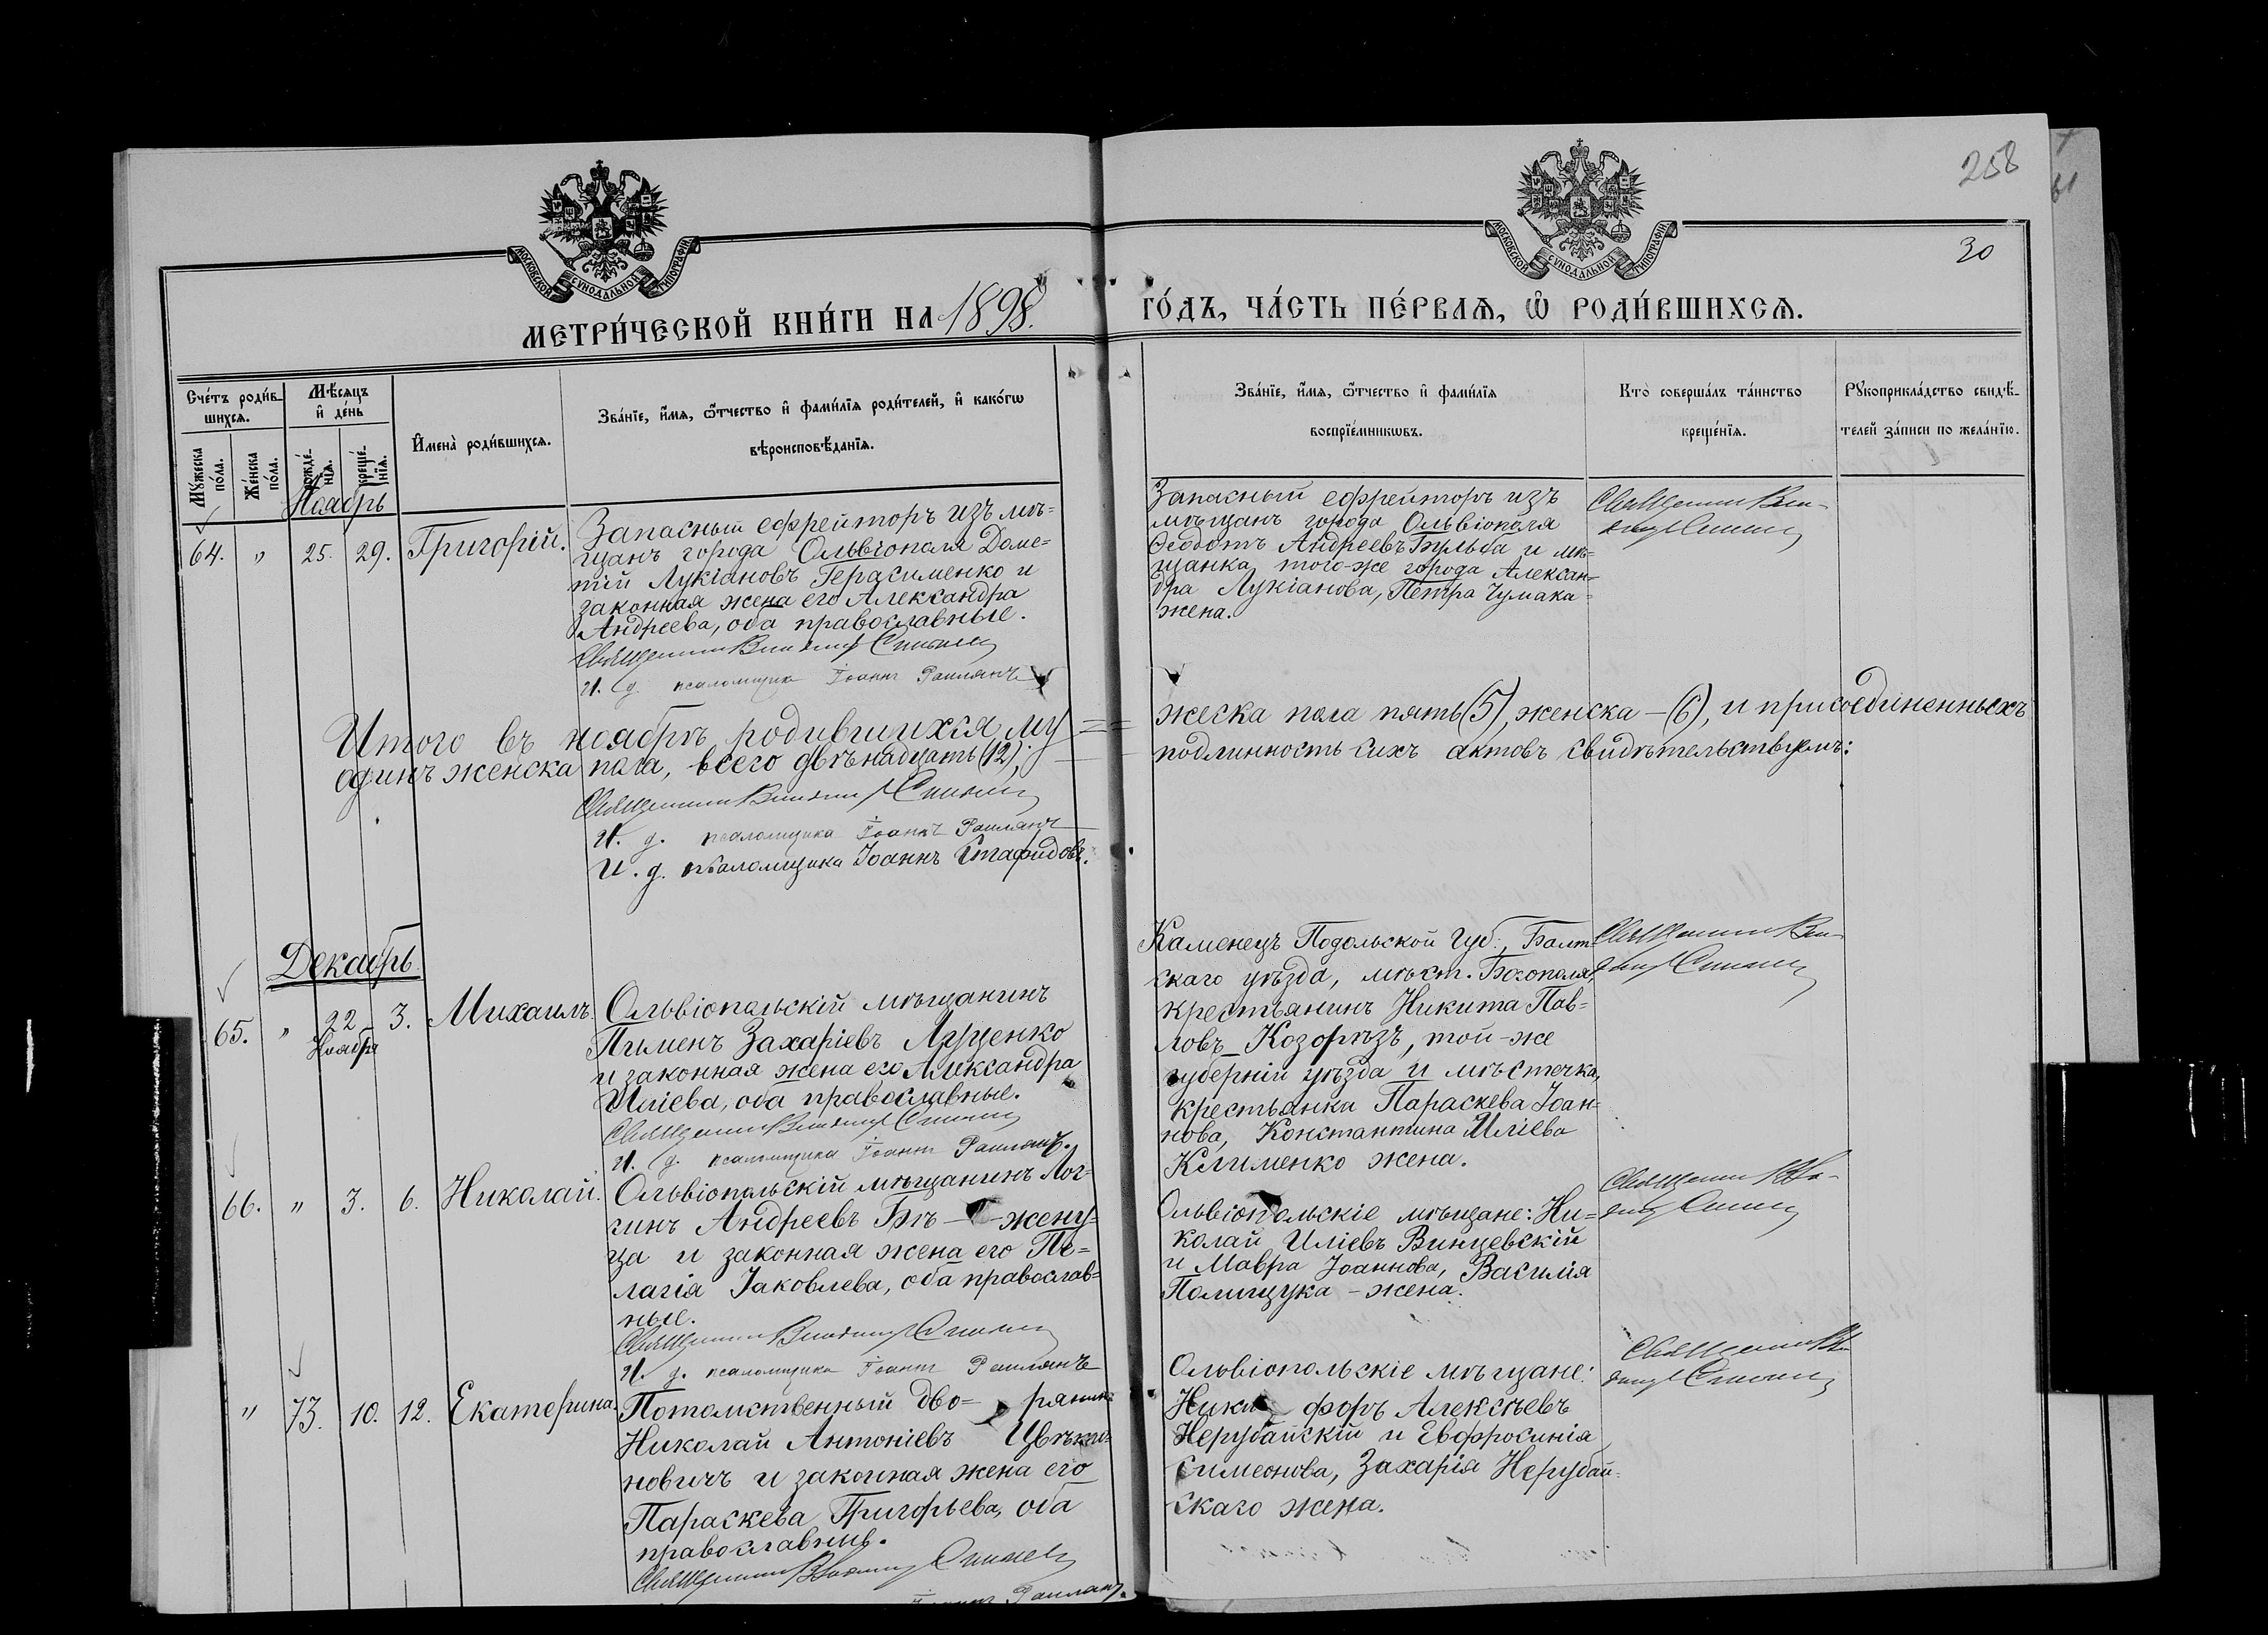 258
30
МОСКОВСКОЙ СѴНОДАЛЬНОЙ ТИПОГРАФІИ
МОСКОВСКОЙ СѴНОДАЛЬНОЙ ТИПОГРАФІИ
МЕТРИ́ЧЕСКОЙ КНИ́ГИ НА 1898.
ГО́ДЪ, ЧА́СТЬ ПЕ́РВАѦ, Ѽ РОДИ́ВШИХСѦ.
Сче́тъ роди́в-
шихсѧ.
Мꙋжеска по́ла.
Же́нска по́ла.
Мѣ́сѧцъ
и҆ де́нь
рожде́-
нїѧ.
креще́-
нїѧ.
И҆мена̀ роди́вшихсѧ.
Зва́нїе, и҆́мѧ, ѻ҆́тчество и҆ фамѝлїѧ роди́телей, и҆ како́гѡ
вѣроисповѣ́данїѧ.
Зва́нїе, и҆́мѧ, ѻ҆́тчество и҆ фами́лїѧ
воспрїе́мникѡвъ.
Кто̀ соверша́лъ та́инство
креще́нїѧ.
Рꙋкоприкла́дство свидѣ́-
телей за́писи по жела́нїю.
Ноябрь
64. " 25. 29. Григорій.
Запасный ефрейторъ изъ мѣ=
щанъ города Ольвіополя Доме=
тій Лукіановъ Герасименко и
законная жена его Александра
Андреева, оба православные.
Священникъ
И. д. псаломщика Іоаннъ
Запасный ефрейторъ изъ
мѣщанъ города Ольвіополя
Ѳеодотъ Андреевъ Бульба и мѣ=
щанка того-же города Алексан=
дра Лукіанова, Петра Чумака
жена.
Священникъ
Итого въ ноябрѣ родившихся му=
жеска пола пять (5), женска — (6), и присоединенныхъ
одинъ женска пола, всего двѣнадцать (12);
подлинность сихъ актовъ свидѣтельствуемъ:
Священникъ
И. д. псаломщика Іоаннъ
И. д. псаломщика Іоаннъ Стафидовъ.
Декабрь
65. " 22 Ноября 3. Михаилъ.
Ольвіопольскій мѣщанинъ
Пименъ Захаріевъ Луценко
и законная жена его Александра
Иліева, оба православные.
Священникъ
И. д. псаломщика Іоаннъ
Каменецъ Подольской губ., Балт
скаго уѣзда, мѣст. Богополя,
крестьянинъ Никита Пав=
ловъ Козорѣзъ, той-же
губерніи уѣзда и мѣстечка,
крестьянка Параскева Іоан=
нова, Константина Иліева
Клименко жена.
Священникъ
66. " 3. 6. Николай.
Ольвіопольскій мѣщанинъ Лог=
гинъ Андреевъ Бѣ — жену=
ца и законная жена его Пе=
лагія Іаковлева, оба православ=
ные.
Священникъ
И. д. псаломщика Іоаннъ
Ольвіопольскіе мѣщане: Ни=
колай Иліевъ Винцевскій
и Мавра Іоаннова, Василія
Полищука – жена.
Священникъ
" 73. 10. 12. Екатерина.
Потомственный дво= рянинъ
Николай Антоніевъ
новичъ и законная жена его
Параскева Григорьева, оба
православные.
Священникъ
Ольвіопольскіе мѣщане:
Ники форъ Алексѣевъ
Нерубайскій и Евфросинія
Симеонова, Захарія Нерубай=
скаго жена.
Священникъ